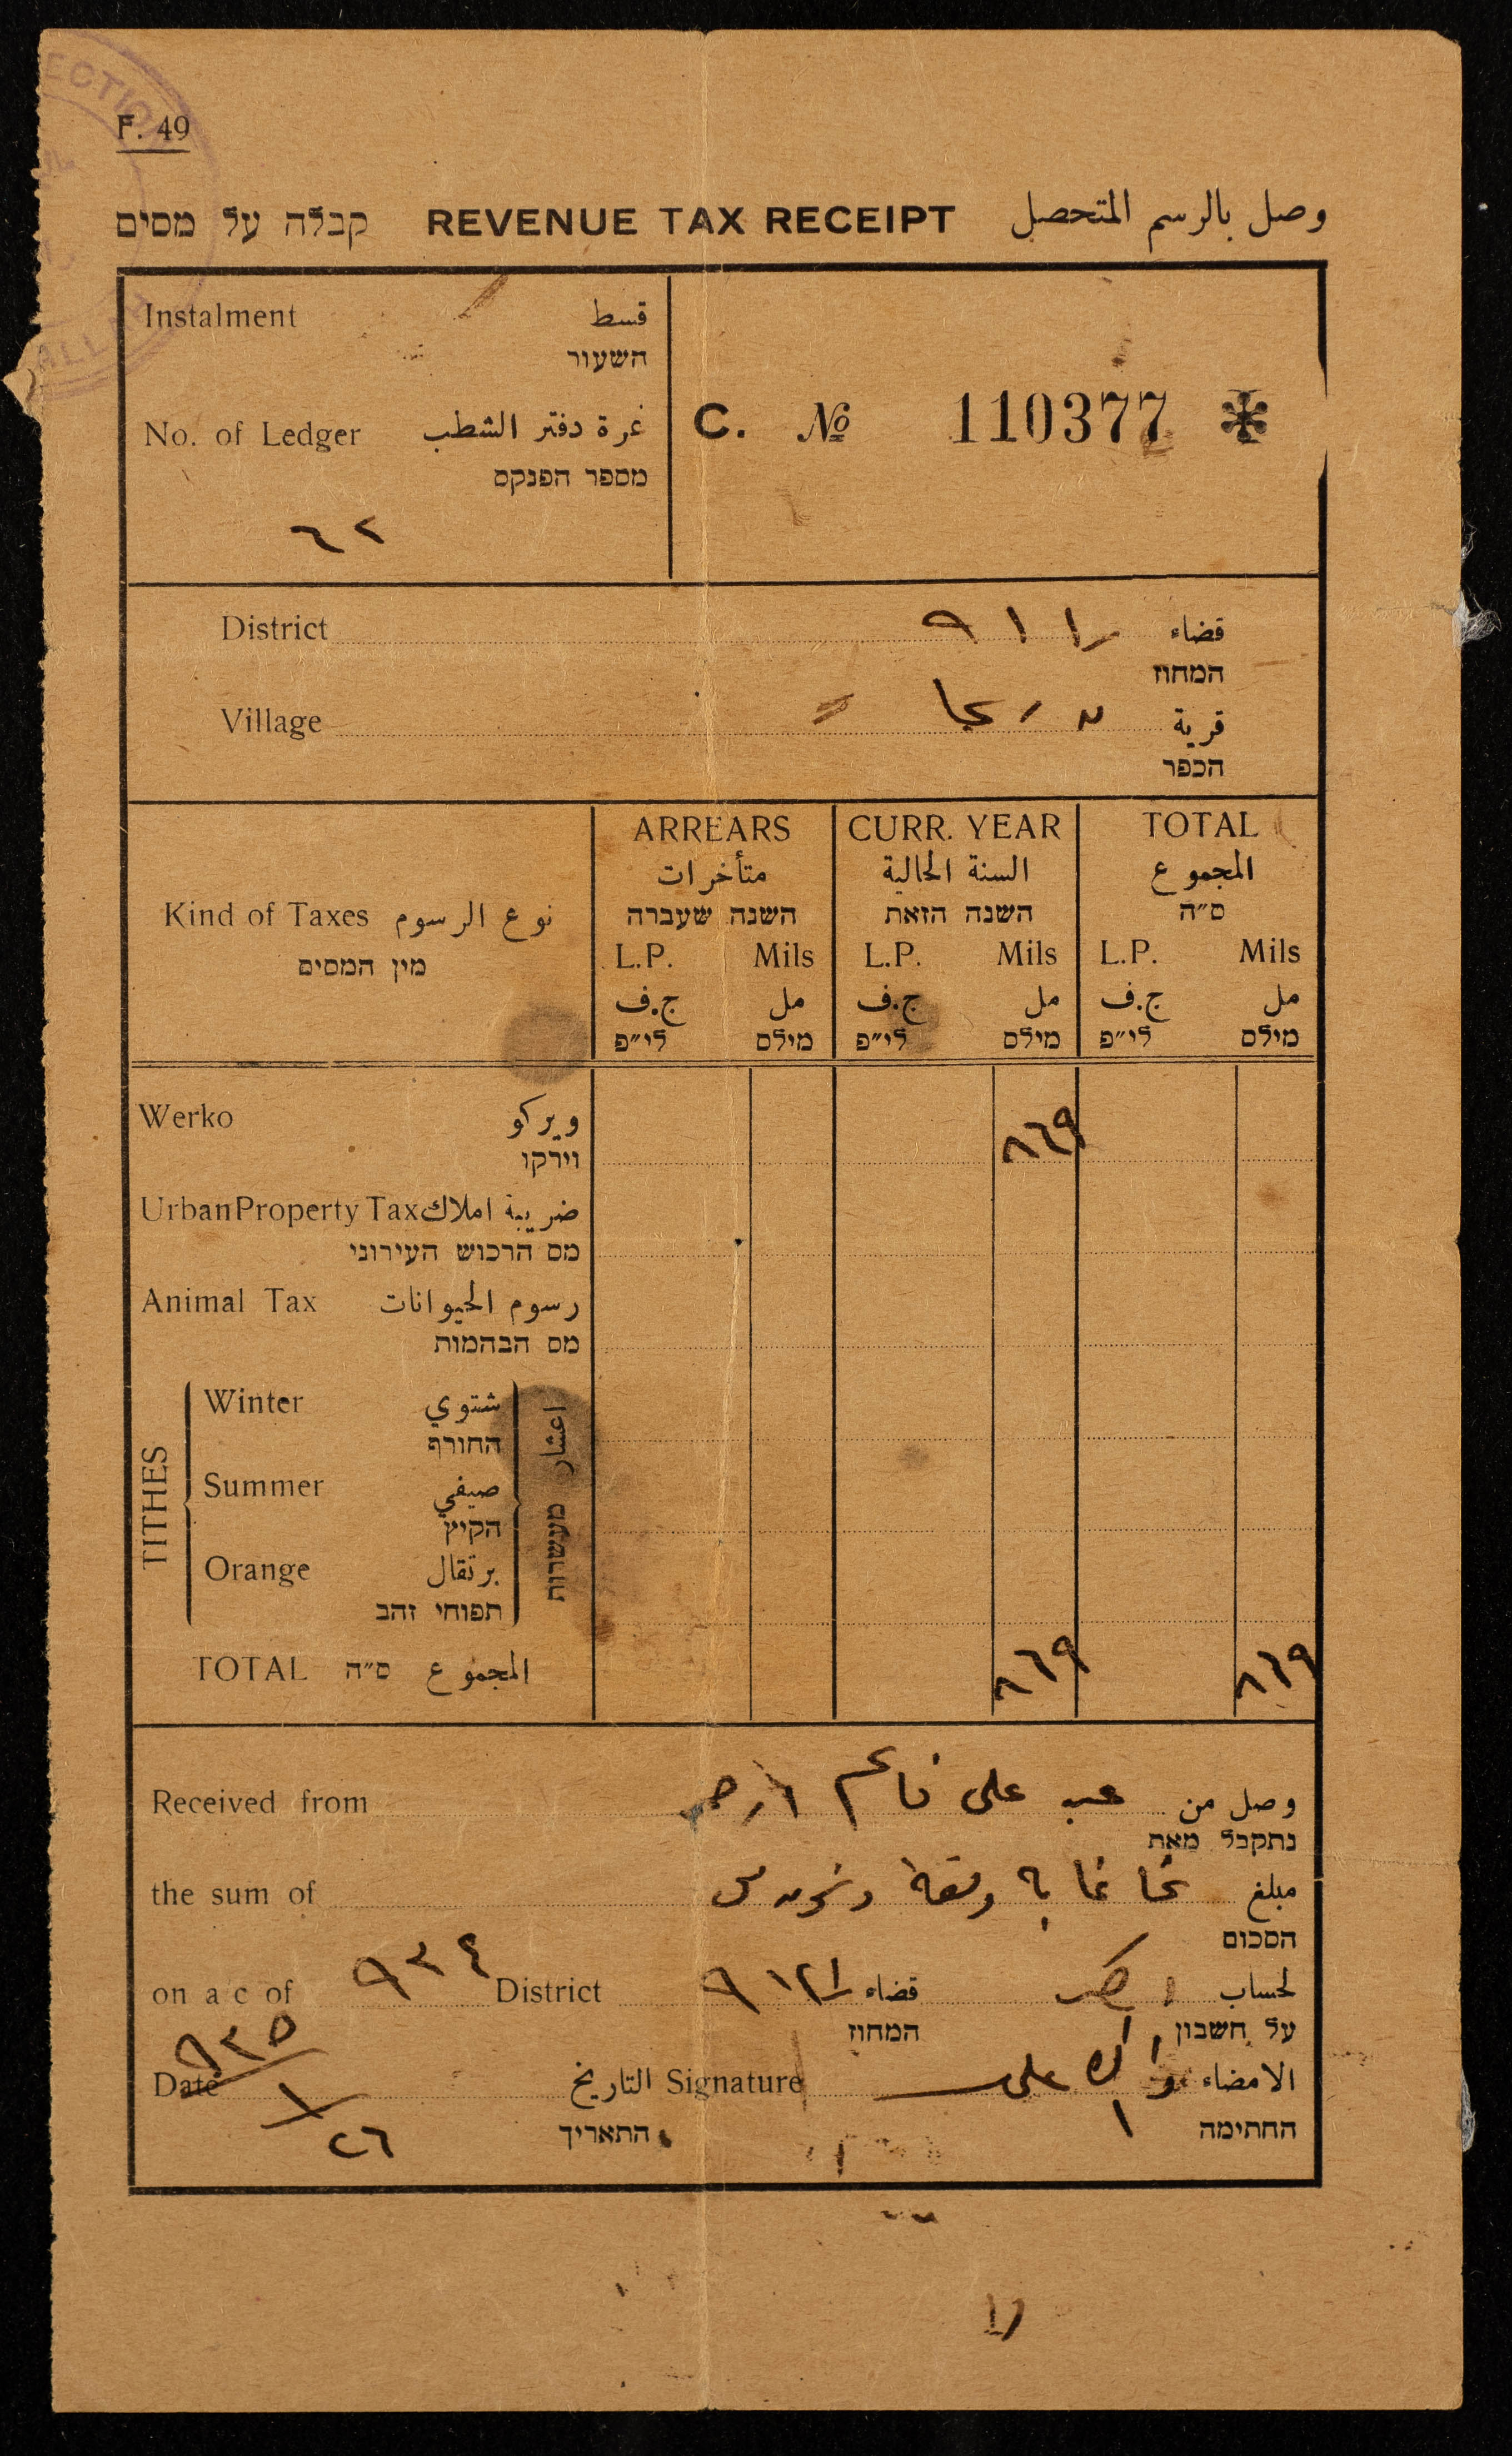 ECTION
F. 49
קבלה על מסים REVENUE TAX RECEIPT وصل بالرسم المتحصل
Instalment قسط
השעור
No. of Ledger نمرة دفتر الشطب
מספר הפנקס
٦٢
C. № 110377
ALLAH
District قضاء
המחוז
Village قرية
הכפר
Kind of Taxes نوع الرسوم
מין המסים
ARREARS CURR. YEAR TOTAL
متأخرات السنة الحالية المجموع
השנה שעברה השנה הזאת ס״ה
L.P. Mils L.P. Mils L.P. Mils
ج.ف مل ج.ف مل ج.ف مل
לי״פ מילס לי״פ מילס לי״פ מילס
Werko ويركو ٨٦٩
וירקו
Urban Property Tax ضريبة املاك
מס הרכוש העירוני
Animal Tax رسوم الحيوانات
מס הבהמות
TITHES
Winter شتوي
החורף
Summer صيفي
הקיץ
Orange برتقال
תפוחי זהב
اعشار מעשרות
TOTAL ס״ה المجموع ٨٦٩ ٨٦٩
Received from وصل من
נתקבל מאת
the sum of مبلغ
הסכום
on a c of ٩٣٤ District قضاء لحساب
המחוז על חשבון
٩٣٥
Date التاريخ Signature علي الامضاء
١
٢٦ התאריך החתימה